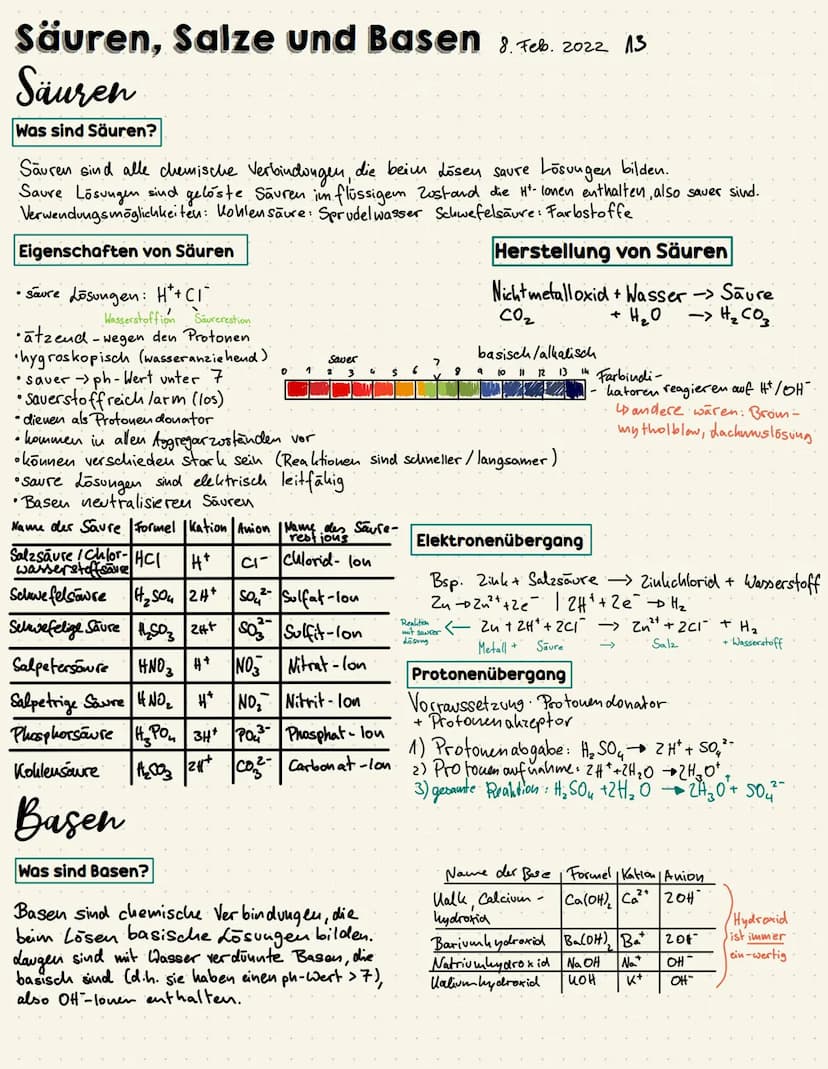 Säuren, Salze und Basen 8. Feb. 2022 13
Säuren
Was sind Säuren?
Säuren sind alle chemische Verbindungen, die beim Lösen saure Lösungen bilden.
Saure Lösungen sind gelöste Säuren im flüssigem Zustand die H⁺-Ionen enthalten, also sauer sind.
Verwendungsmöglichkeiten: Kohlensäure: Sprudelwasser Schwefelsäure: Farbstoffe
Eigenschaften von Säuren
• saure Lösungen: H⁺ + Cl⁻
Wasserstoffion Säurerestion
• ätzend – wegen den Protonen
• hygroskopisch (wasseranziehend)
• sauer → ph-Wert unter 7
• Sauerstoffreich/arm (los)
• dienen als Protonendonator
• kommen in allen Aggregarzuständen vor
• können verschieden stark sein (Reaktionen sind schneller/langsamer)
• saure Lösungen sind elektrisch leitfähig
• Basen neutralisieren Säuren
Herstellung von Säuren
Nichtmetalloxid + Wasser → Säure
CO₂ + H₂O → H₂CO₃
sauer 7 basisch/alkalisch
0 1 2 3 4 5 6 8 9 10 11 12 13 14
Farbindi-
katoren reagieren auf H⁺/OH⁻
↳ andere wären: Brom-
mytholblow, dachumslösung
Name der Säure | Formel | Kation | Anion | Name des Säure-restions
Salzsäure/Chlor-wasserstoffsäure | HCl | H⁺ | Cl⁻ | Chlorid-Ion
Schwefelsäure | H₂SO₄ | 2H⁺ | SO₄²⁻ | Sulfat-Ion
Schwefelige Säure | H₂SO₃ | 2H⁺ | SO₃²⁻ | Sulfit-Ion
Salpetersäure | HNO₃ | H⁺ | NO₃⁻ | Nitrat-Ion
Salpetrige Säure | HNO₂ | H⁺ | NO₂⁻ | Nitrit-Ion
Phosphorsäure | H₃PO₄ | 3H⁺ | PO₄³⁻ | Phosphat-Ion
Kohlensäure | H₂CO₃ | 2H⁺ | CO₃²⁻ | Carbonat-Ion
Elektronenübergang
Bsp. Zink + Salzsäure → Zinkchlorid + Wasserstoff
Zn → Zn²⁺ + 2e⁻ | 2H⁺ + 2e⁻ → H₂
Reaktion mit saurer Lösung ← Zn + 2H⁺ + 2Cl⁻ → Zn²⁺ + 2Cl⁻ + H₂
Metall + Säure → Salz + Wasserstoff
Protonenübergang
Vorraussetzung: Protonendonator
+ Protonenakzeptor
1) Protonenabgabe: H₂SO₄ → 2H⁺ + SO₄²⁻
2) Protonenaufnahme: 2H⁺ + 2H₂O → 2H₃O⁺
3) gesamte Reaktion: H₂SO₄ + 2H₂O → 2H₃O⁺ + SO₄²⁻
Basen
Was sind Basen?
Basen sind chemische Verbindungen, die
beim Lösen basische Lösungen bilden.
Laugen sind mit Wasser verdünnte Basen, die
basisch sind (d.h. sie haben einen ph-Wert > 7),
also OH⁻-Ionen enthalten.
Name der Base | Formel | Kation | Anion
Kalk, Calcium-hydroxid | Ca(OH)₂ | Ca²⁺ | 2OH⁻
Bariumhydroxid | Ba(OH)₂ | Ba⁺ | 2OH⁻
Natriumhydroxid | NaOH | Na⁺ | OH⁻
Kaliumhydroxid | KOH | K⁺ | OH⁻
Hydroxid
ist immer
ein-wertig